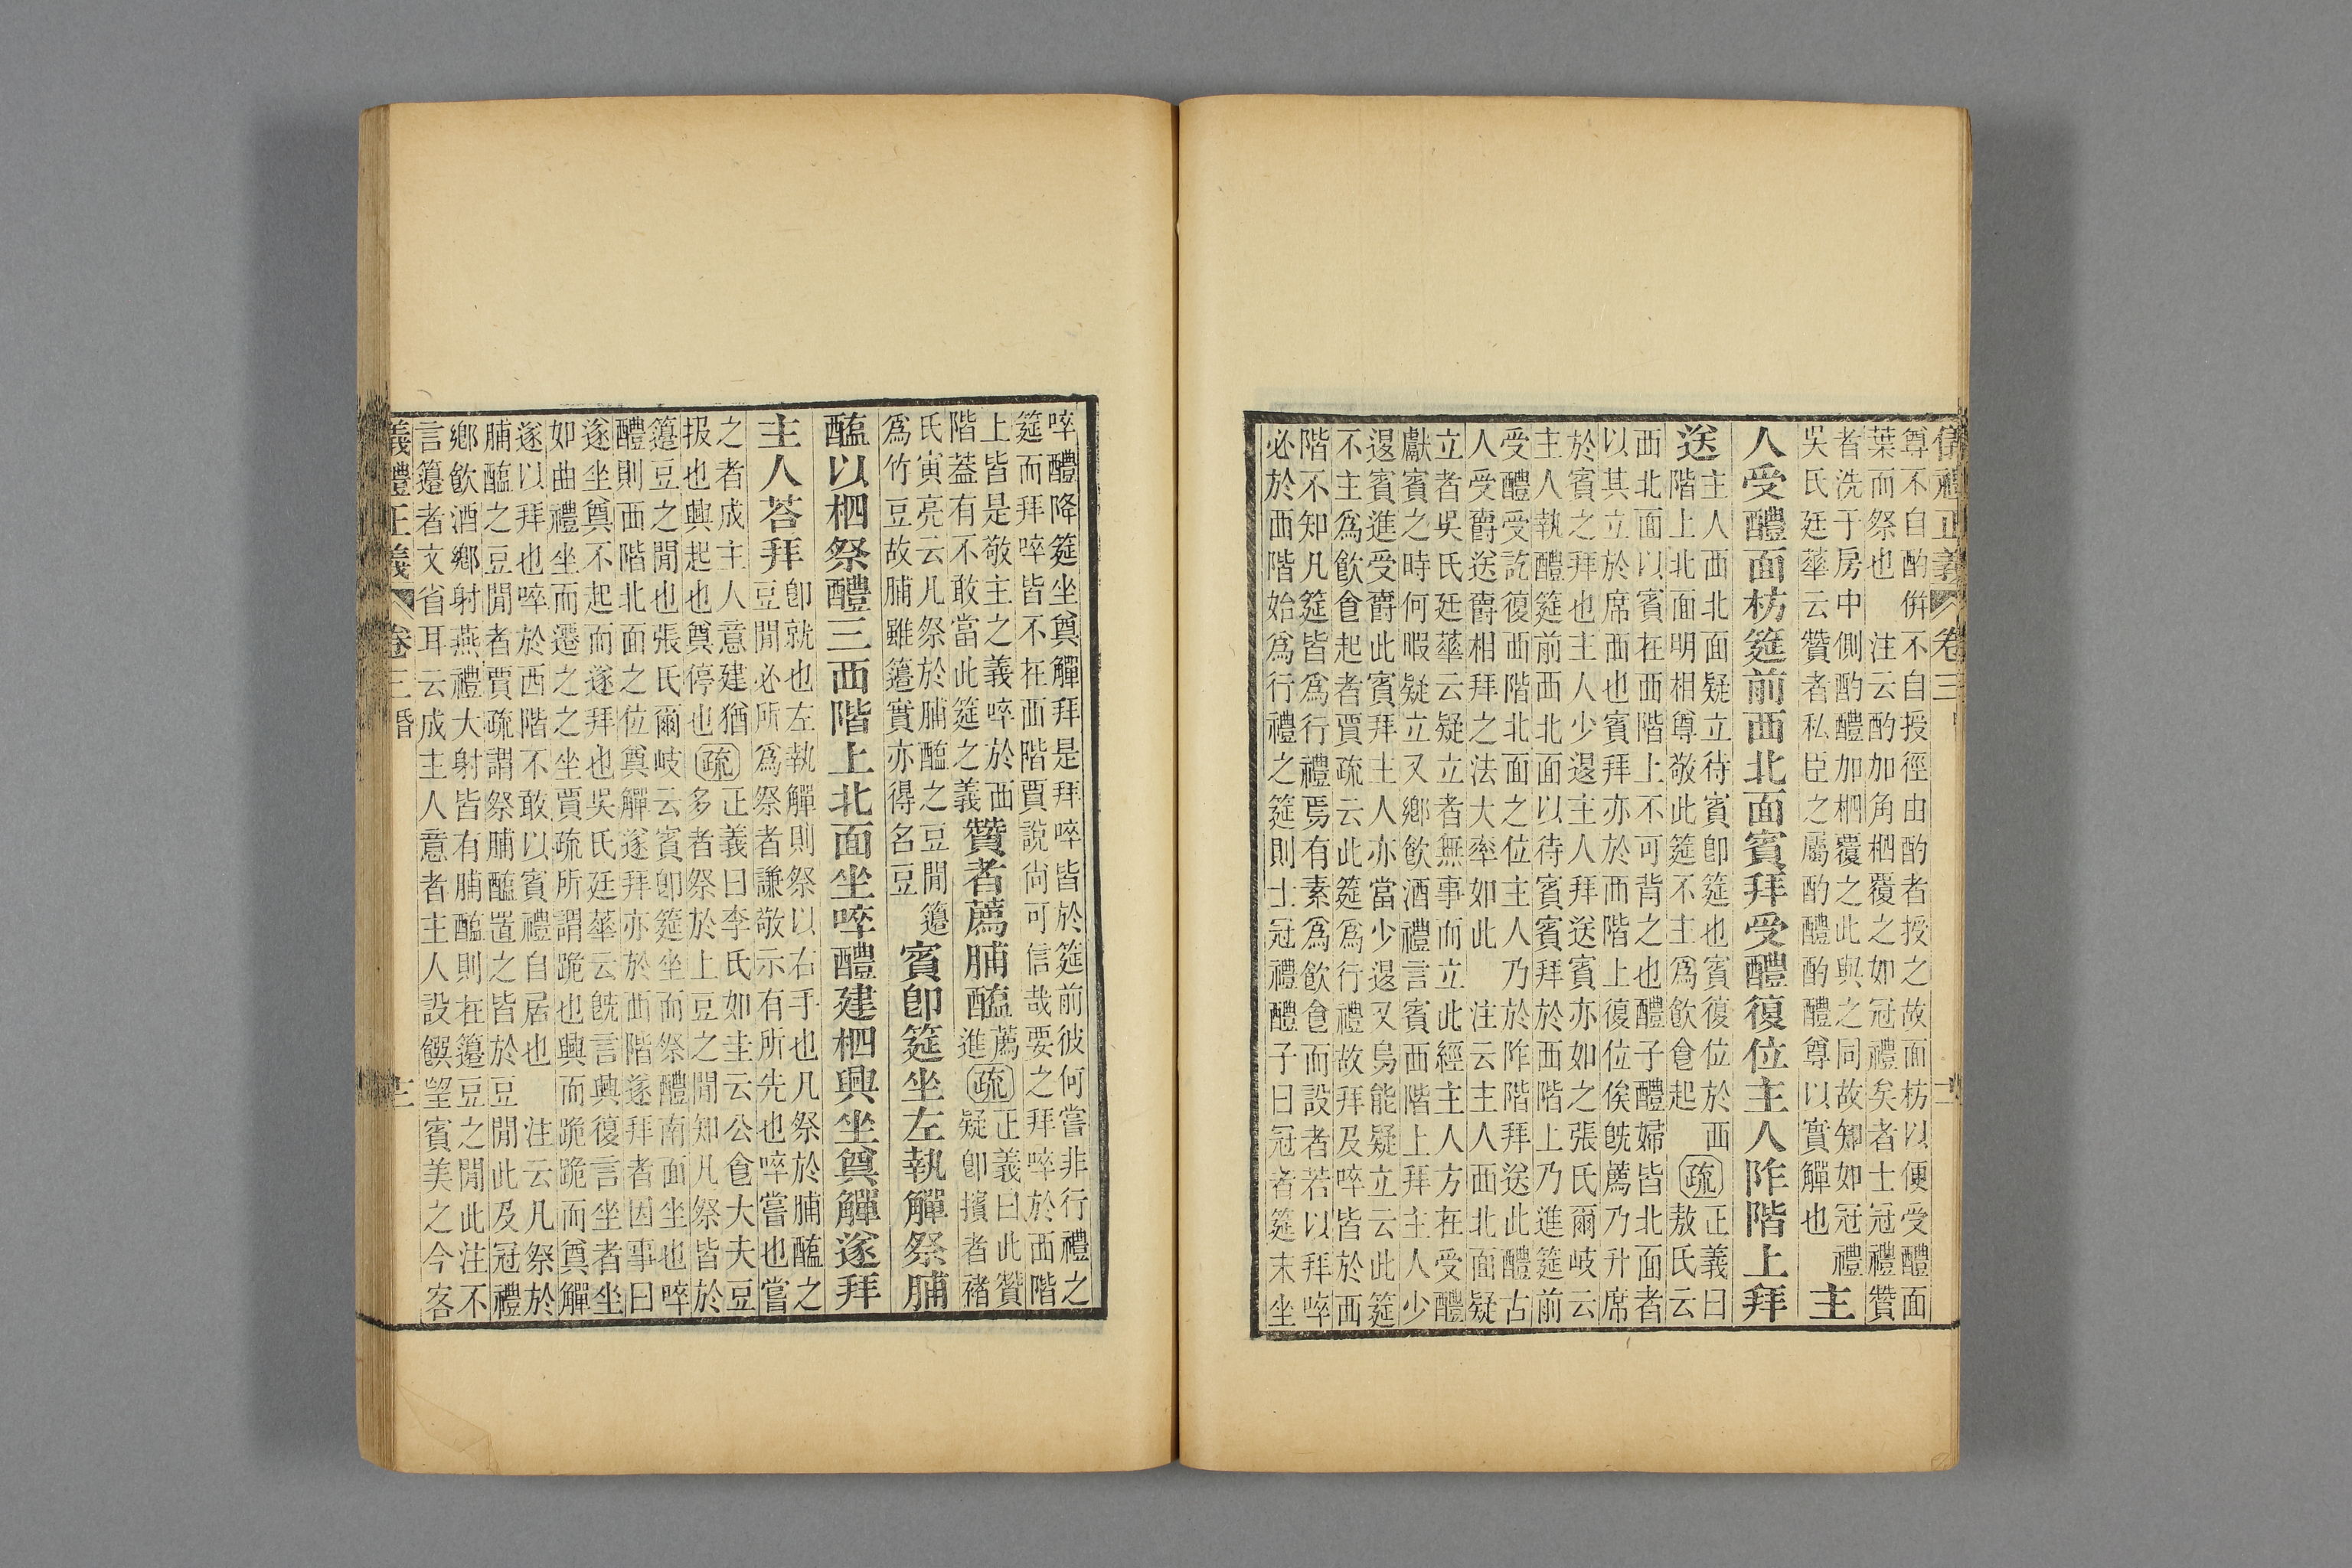 儀禮正義 卷三
尊不自酌併不自授徑由酌者授之故面枋以便受醴面
葉而祭也 注云酌加角柶覆之如冠禮矣者士冠禮贊
者洗于房中側酌醴加柶覆之此與之同故知如冠禮
吳氏廷華云贊者私臣之屬酌醴酌醴尊以實觶也
主
人受醴面枋筵前西北面賓拜受醴復位主人阼階上拜
送
主人西北面疑立待賓卽筵也賓復位於西
階上北面明相尊敬此筵不主爲飮食起
疏
正義曰
敖氏云
西北面以賓在西階上不可背之也醴子醴婦皆北面者
以其立於席西也賓拜亦於西階上復位俟旣薦乃升席
於賓之拜也主人少退主人拜送賓亦如之張氏爾岐云
主人執醴筵前西北面以待賓賓拜於西階上乃進筵前
受醴受訖復西階北面之位主人乃於阼階拜送此醴古
人受爵送爵相拜之法大率如此 注云主人西北面疑
立者吳氏廷華云疑立者無事而立此經主人方在受醴
獻賓之時何暇疑立又鄉飮酒禮言賓西階上拜主人少
退賓進受爵此賓拜主人亦當少退又烏能疑立云此筵
不主爲飮食起者賈疏云此筵爲行禮故拜及啐皆於西
階不知凡筵皆爲行禮焉有素爲飮食而設者若以拜啐
必於西階始爲行禮之筵則士冠禮醴子曰冠者筵末坐
啐醴降筵坐奠觶拜是拜啐皆於筵前彼何嘗非行禮之
筵而拜啐皆不在西階賈說尙可信哉要之拜啐於西階
上皆是敬主之義啐於西
階蓋有不敢當此筵之義
贊者薦脯醢
薦
進
疏
正義曰此贊
疑卽擯者褚
氏寅亮云凡祭於脯醢之豆閒籩
爲竹豆故脯雖籩實亦得名豆
賓卽筵坐左執觶祭脯
醢以柶祭醴三西階上北面坐啐醴建柶興坐奠觶遂拜
主人荅拜
卽就也左執觶則祭以右手也凡祭於脯醢之
豆閒必所爲祭者謙敬示有所先也啐嘗也嘗
之者成主人意建猶
扱也興起也奠停也
疏
正義曰李氏如圭云公食大夫豆
多者祭於上豆之閒知凡祭皆於
籩豆之閒也張氏爾岐云賓卽筵坐而祭醴南面坐也啐
醴則西階北面之位奠觶遂拜亦於西階遂拜者因事曰
遂坐奠不起而遂拜也吳氏廷華云旣言興復言坐者坐
如曲禮坐而遷之之坐賈疏所謂跪也興而跪跪而奠觶
遂以拜也啐於西階不敢以賓禮自居也 注云凡祭於
脯醢之豆閒者賈疏謂祭脯醢置之皆於豆閒此及冠禮
鄉飮酒鄉射燕禮大射皆有脯醢則在籩豆之閒此注不
言籩者文省耳云成主人意者主人設饌望賓美之今客
儀禮正義 卷三 昏